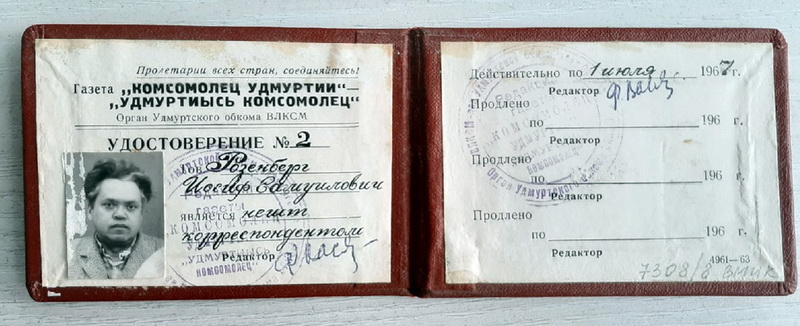 Пролетарии всех стран, соединяйтесь!
Газета „КОМСОМОЛЕЦ УДМУРТИИ“—
„УДМУРТИЫСЬ КОМСОМОЛЕЦ“
Орган Удмуртского обкома ВЛКСМ
УДОСТОВЕРЕНИЕ № 2
Тов Розенберг
Иосиф Самуилович
является нешт
корреспондентом
Редактор
Действительно по 1 июля 1967 г.
Редактор
Продлено
по 196 г.
Редактор
Продлено
по 196 г.
Редактор
Продлено
по 196 г.
Редактор
4961—63
7308/8 ВМИК